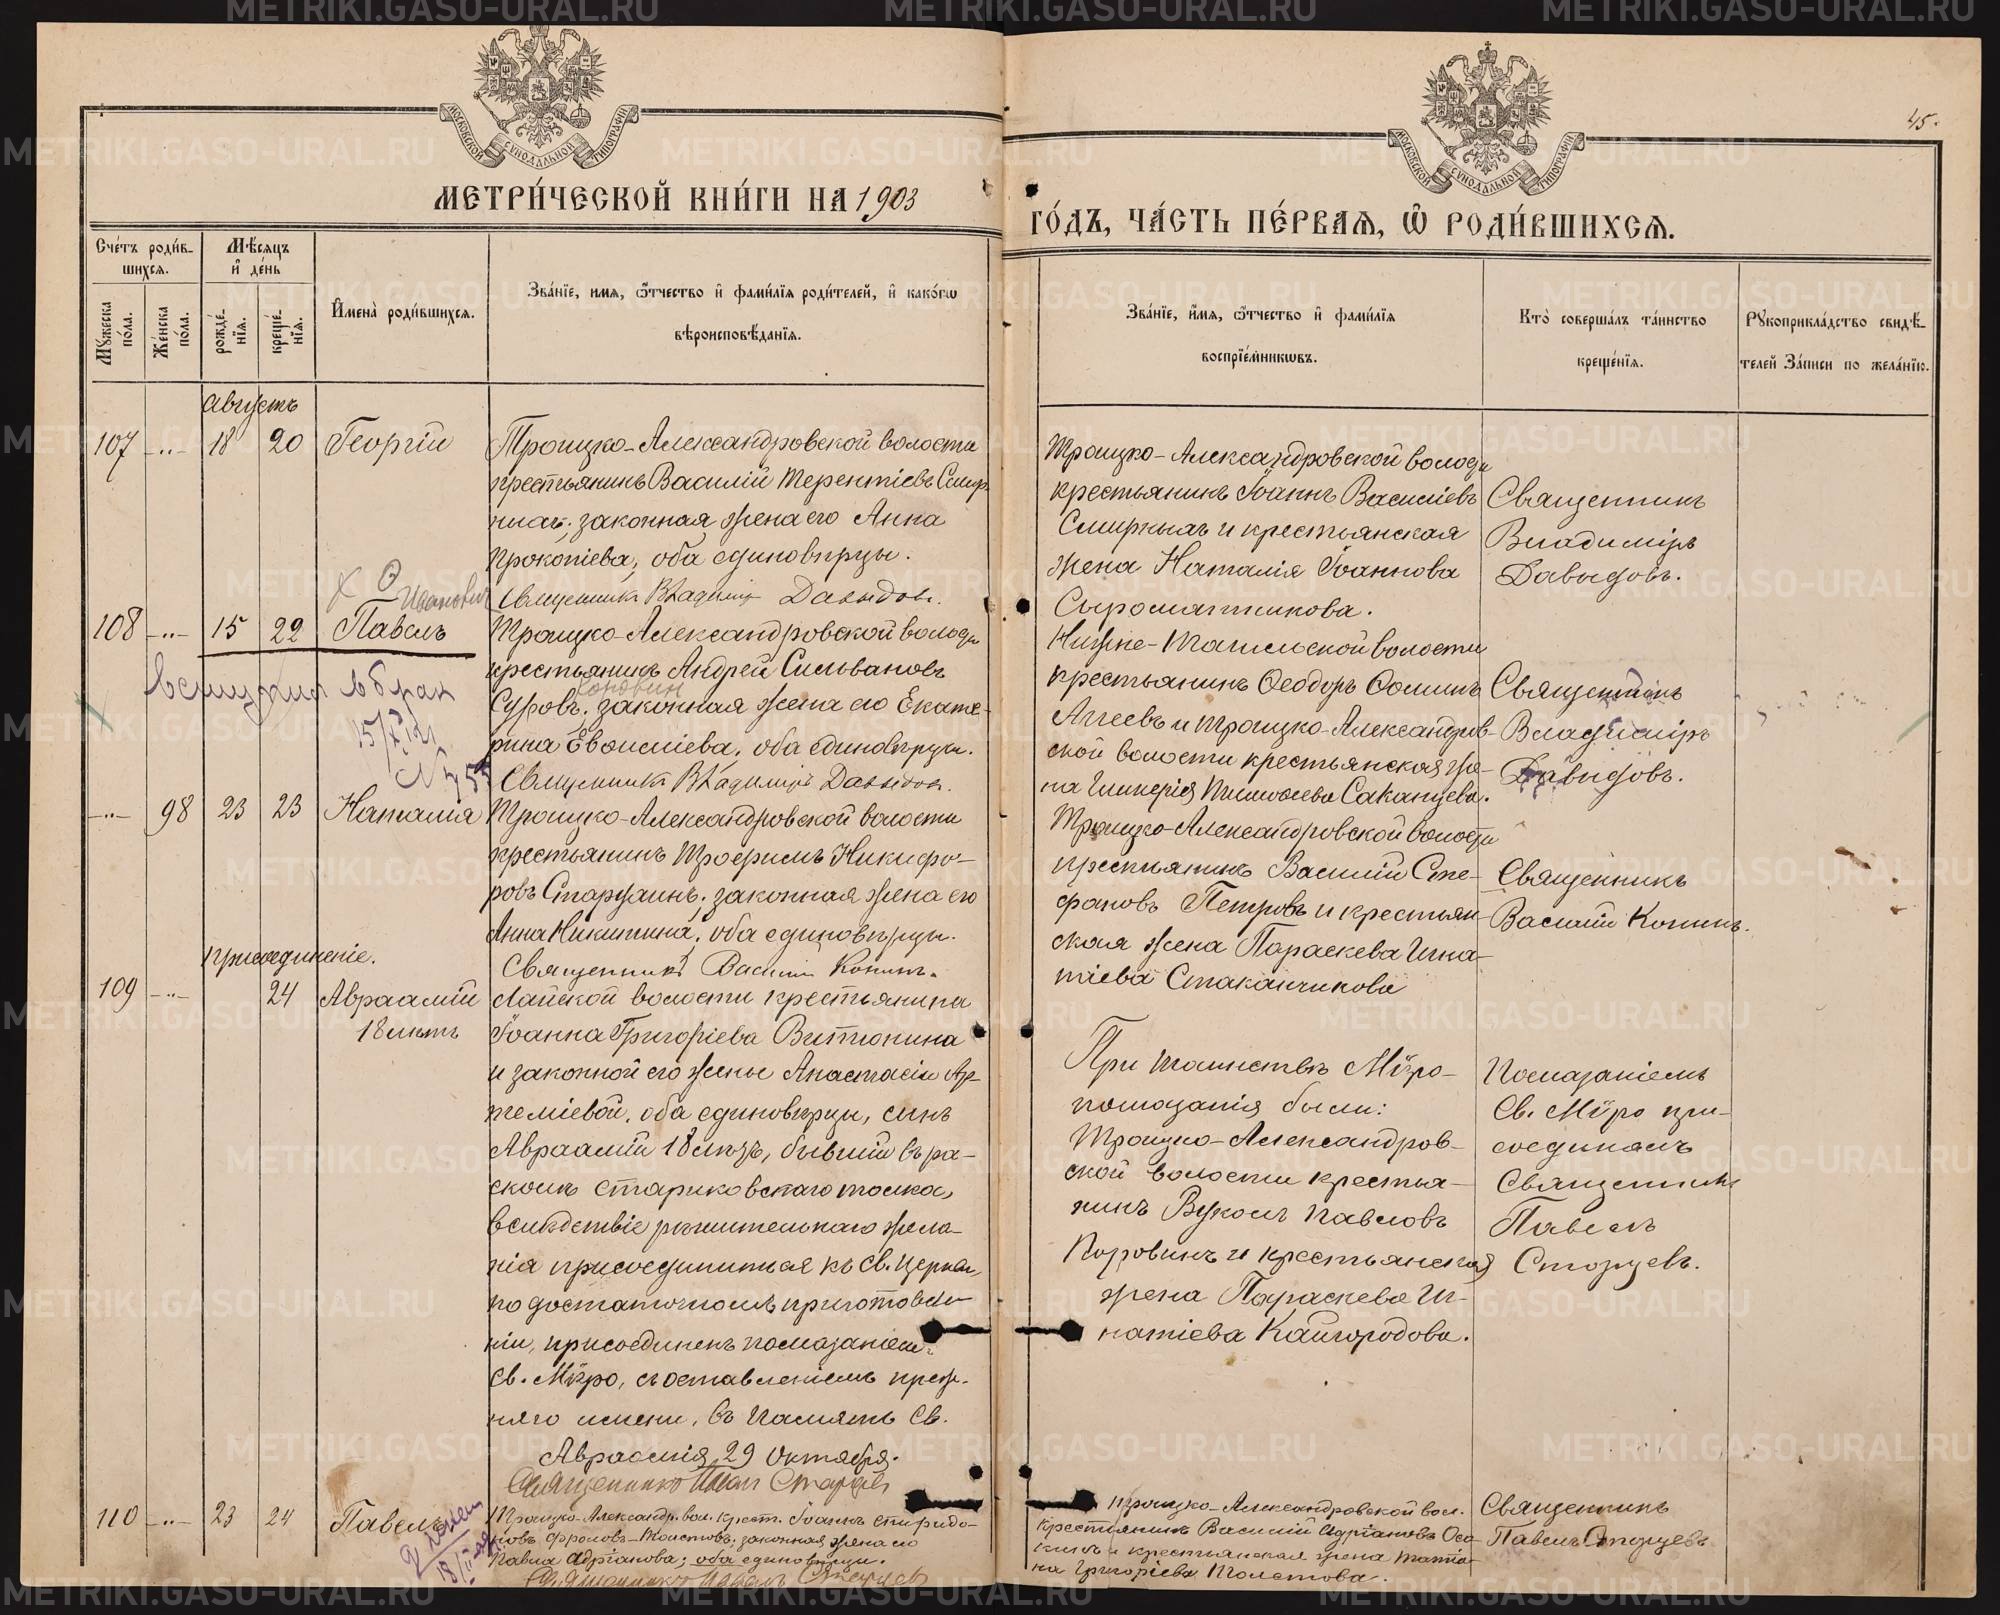 МЕТРИ́ЧЕСКОЙ КНИ́ГИ НА 1903
ГО́ДЪ, ЧА́СТЬ ПЕ́РВАЯ, Ѿ РОДИ́ВШИХСЯ.
45.
МОСКОВСКОЙ СУНОДАЛЬНОЙ ТИПОГРАФІИ
МОСКОВСКОЙ СУНОДАЛЬНОЙ ТИПОГРАФІИ
Сче́тъ роди́в-
шихся.
Мѣ́сяцъ
и҆ де́нь
Му́жеска
по́ла.
Же́нска
по́ла.
рожде́-
нїя.
креще́-
нїя.
И҆мена̀ роди́вшихся.
Зва́нїе, имя, ѻ҆́тчество и҆ фами́лїя роди́телей, и҆ како́гѡ
вѣроисповѣ́данїя.
Зва́нїе, и҆́мя, ѻ҆́тчество и҆ фами́лїя
воспрїе́мникѡвъ.
Кто̀ соверша́лъ та́инство
креще́нїя.
Рукоприкла́дство свидѣ́-
телей За́писи по жела́нїю.
Августъ
107 -"- 18 20 Георгій
Троицко-Александровской волости
крестьянинъ Василій Терентіевъ Смир-
законная жена его Анна
Прокопіева, оба единовѣрцы.
Священникъ Владиміръ Давыдовъ.
Троицко-Александровской волости
крестьянинъ Іоаннъ Василіевъ
и крестьянская
жена Наталія Іоаннова
Сыромятникова.
Священникъ
Владиміръ
Давыдовъ.
Иванович
108 -"- 15 22 Павелъ
вступил в брак
Троицко-Александровской волости
крестьянинъ Андрей Сильвановъ
Суровъ, законная жена его Екате-
рина оба единовѣрцы.
Священникъ Владиміръ Давыдовъ.
Нижне-Тагильской волости
крестьянинъ Ѳеодоръ Ѳоминъ
Агеевъ и Троицко-Александров-
ской волости крестьянская же-
на Гликерія
Священникъ
Владиміръ
Давыдовъ.
-"- 98 23 23 Наталія
Троицко-Александровской волости
крестьянинъ Трофимъ Никифо-
ровъ законная жена его
Анна Никитина, оба единовѣрцы.
Священникъ Василій
Троицко-Александровской волости
крестьянинъ Василій Сте-
фановъ Петровъ и крестьян-
ская жена Параскева Игна-
тіева Стаканчикова
Священникъ
Василій
присоединеніе.
109 -"- 24 Авраамій
18 лѣтъ
Лайской волости крестьянина
Іоанна Григоріева Витюнина
и законной его жены Анастасіи Ар-
теміевой, оба единовѣрцы, сынъ
Авраамій 18 лѣтъ, бывшій въ ра-
сколѣ стариковскаго толка,
вслѣдствіе рѣшительнаго жела-
нія присоединиться къ св. церкви,
по достаточномъ приготовле-
ніи, присоединенъ помазаніемъ
св. Мѵро, съ оставленіемъ преж-
няго имени, въ память св.
Авраамія 29 октября.
Священникъ Павелъ Старцевъ
При таинствѣ Мѵро-
помазанія были:
Троицко-Александров-
ской волости крестья-
нинъ Вуколъ Павловъ
Коровинъ и крестьянская
жена Параскева Иг-
натіева Кайгородова.
Помазаніемъ
Св. Мѵро при-
соединялъ
Священникъ
Павелъ
Старцевъ.
110 -"- 23 24 Павелъ
Троицко-Александр. вол. крест. Іоаннъ Спиридо-
новъ законная жена его
Павла Адріанова; оба единовѣрцы.
Священникъ Павелъ Старцевъ
Троицко-Александровской вол.
крестьянинъ Василій Адріановъ Оса-
кинъ и крестьянская жена Татія-
на Григоріева Толстова.
Священникъ
Павелъ Старцевъ
METRIKI.GASO-URAL.RU